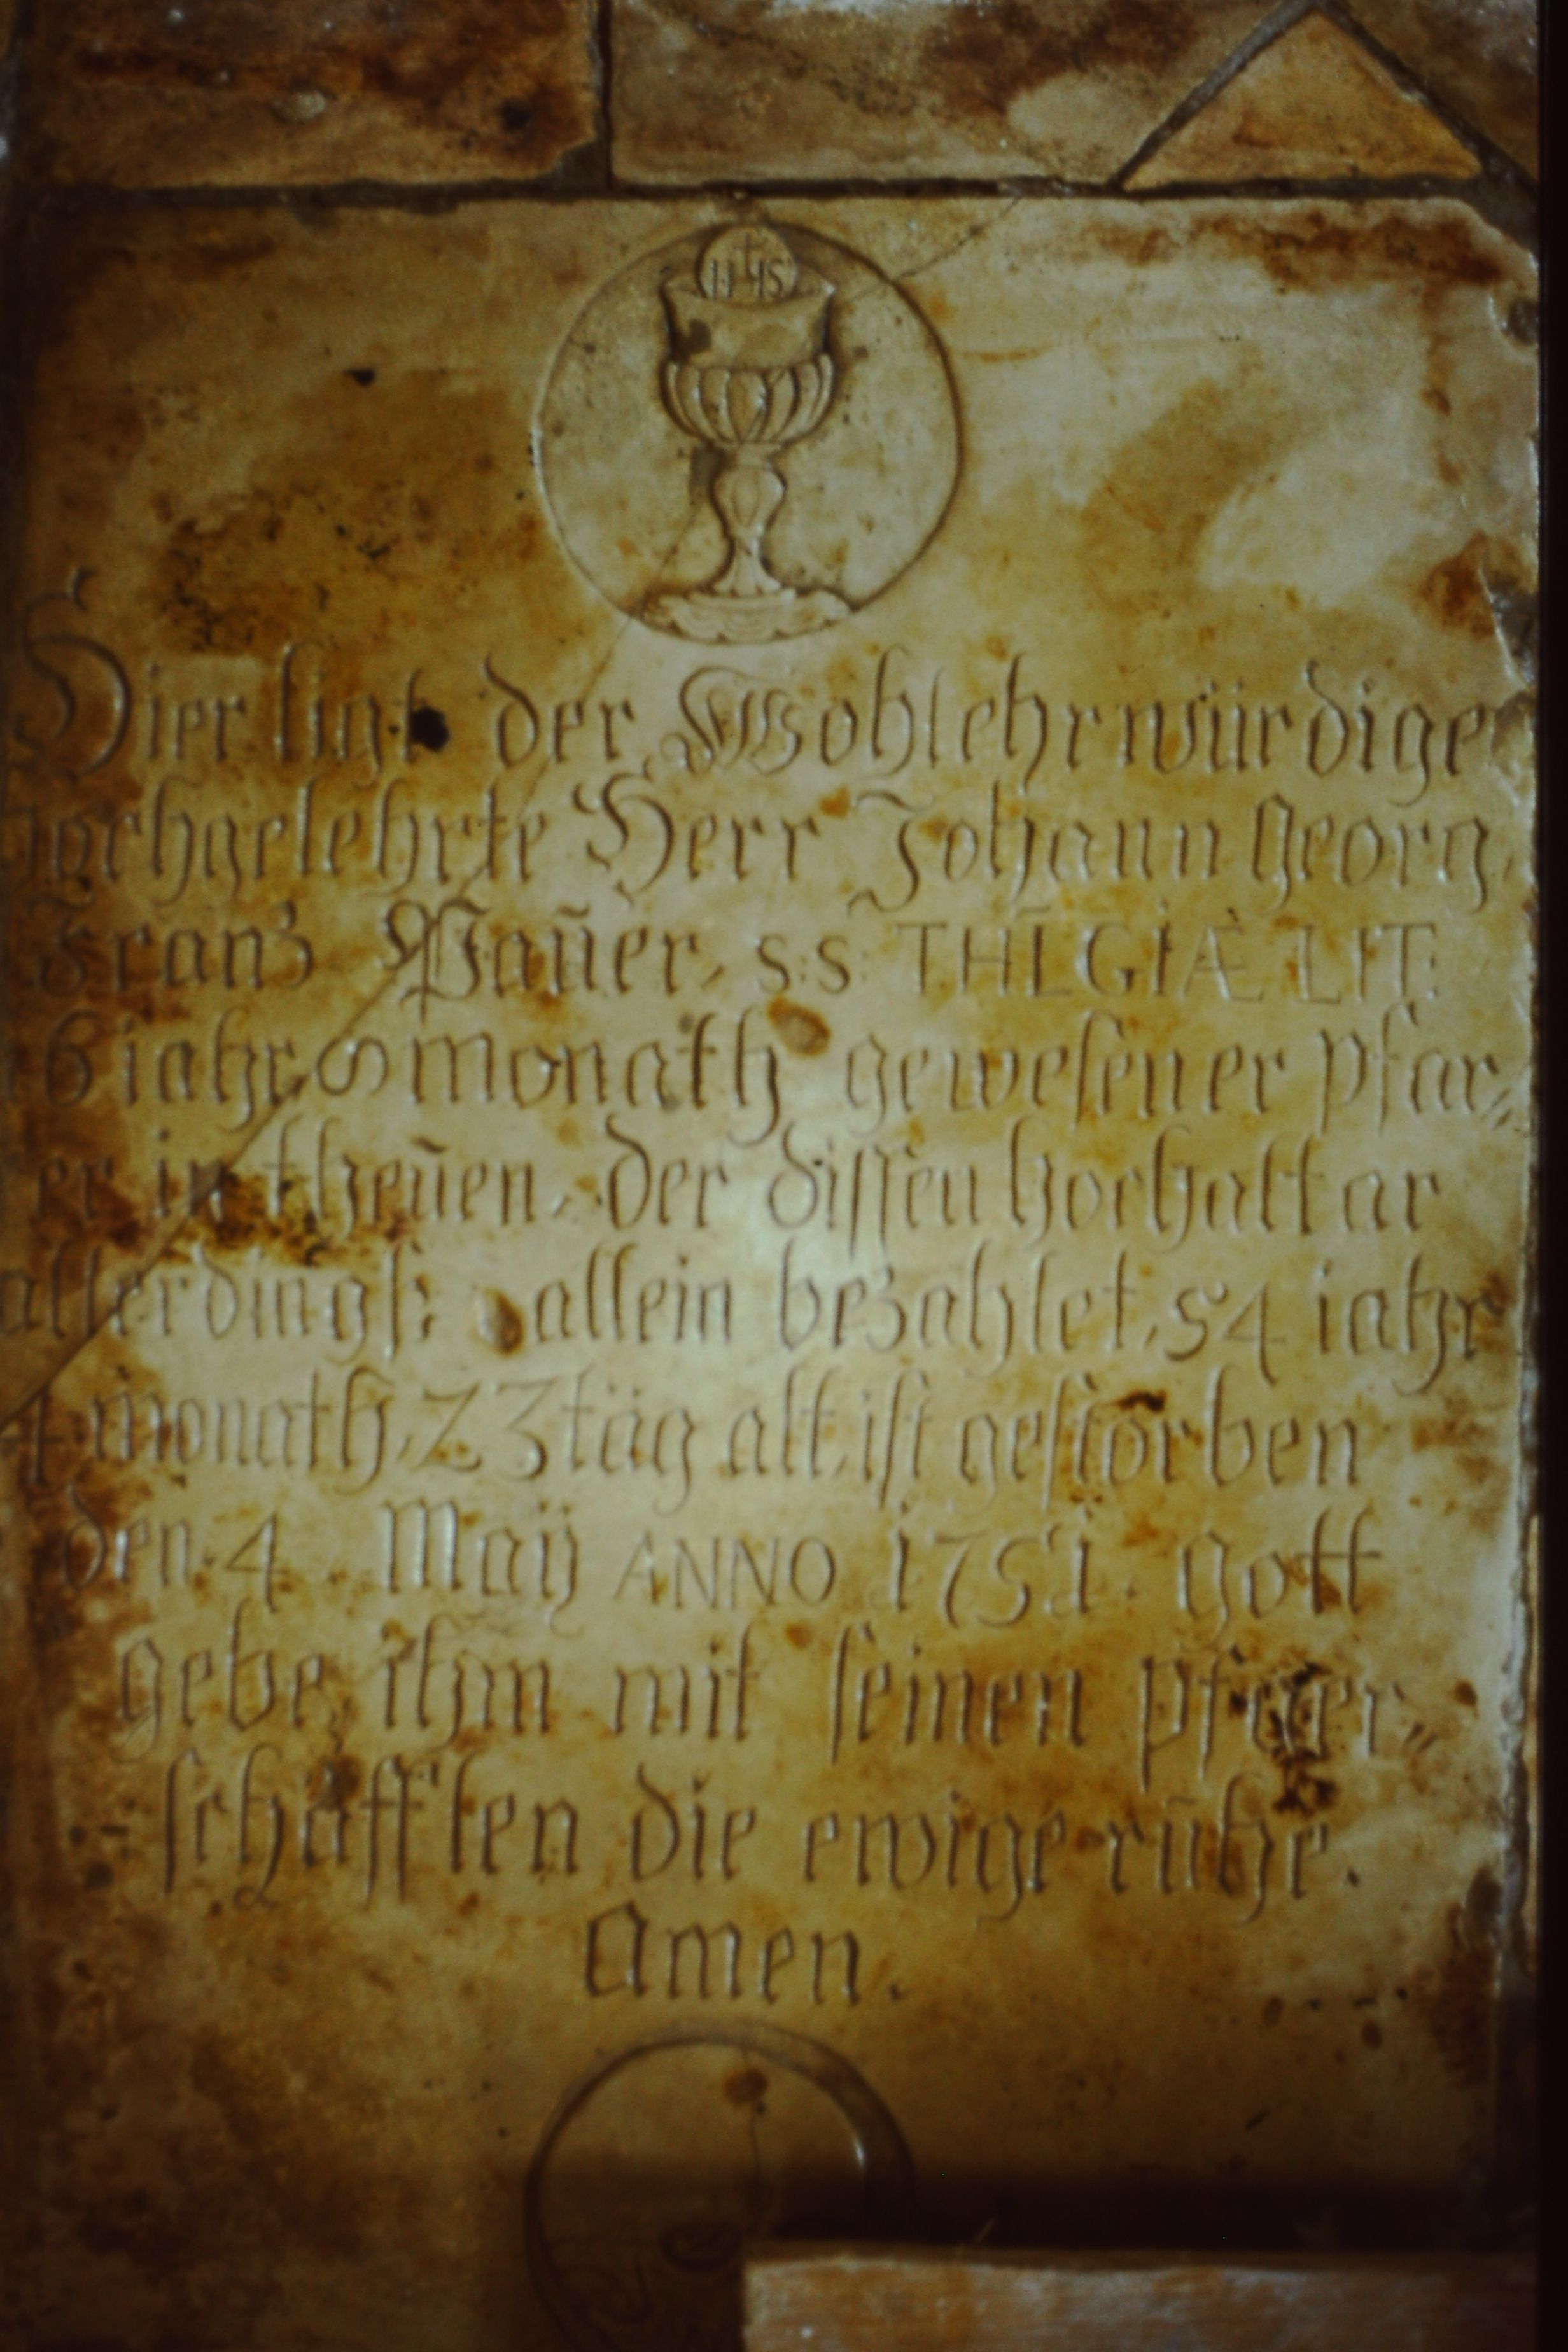 IHS
Hier ligt der Wohlehrwürdige
hochgelehrte Herr Johann Georg
Franz Paŭer, S:S: THLGIÆ LIT:
6 iahr 8 monath gewesener pfar„
er in theŭen, der dissen hochaltar
allerdings: allein bezahlet, 54 iahr
4 monath, 23 täg alt, ist gestorben
den 4. Maÿ ANNO 1751. Gott
gebe ihm mit seinen pfarr„
schäfflen die ewige rŭhe.
Amen.